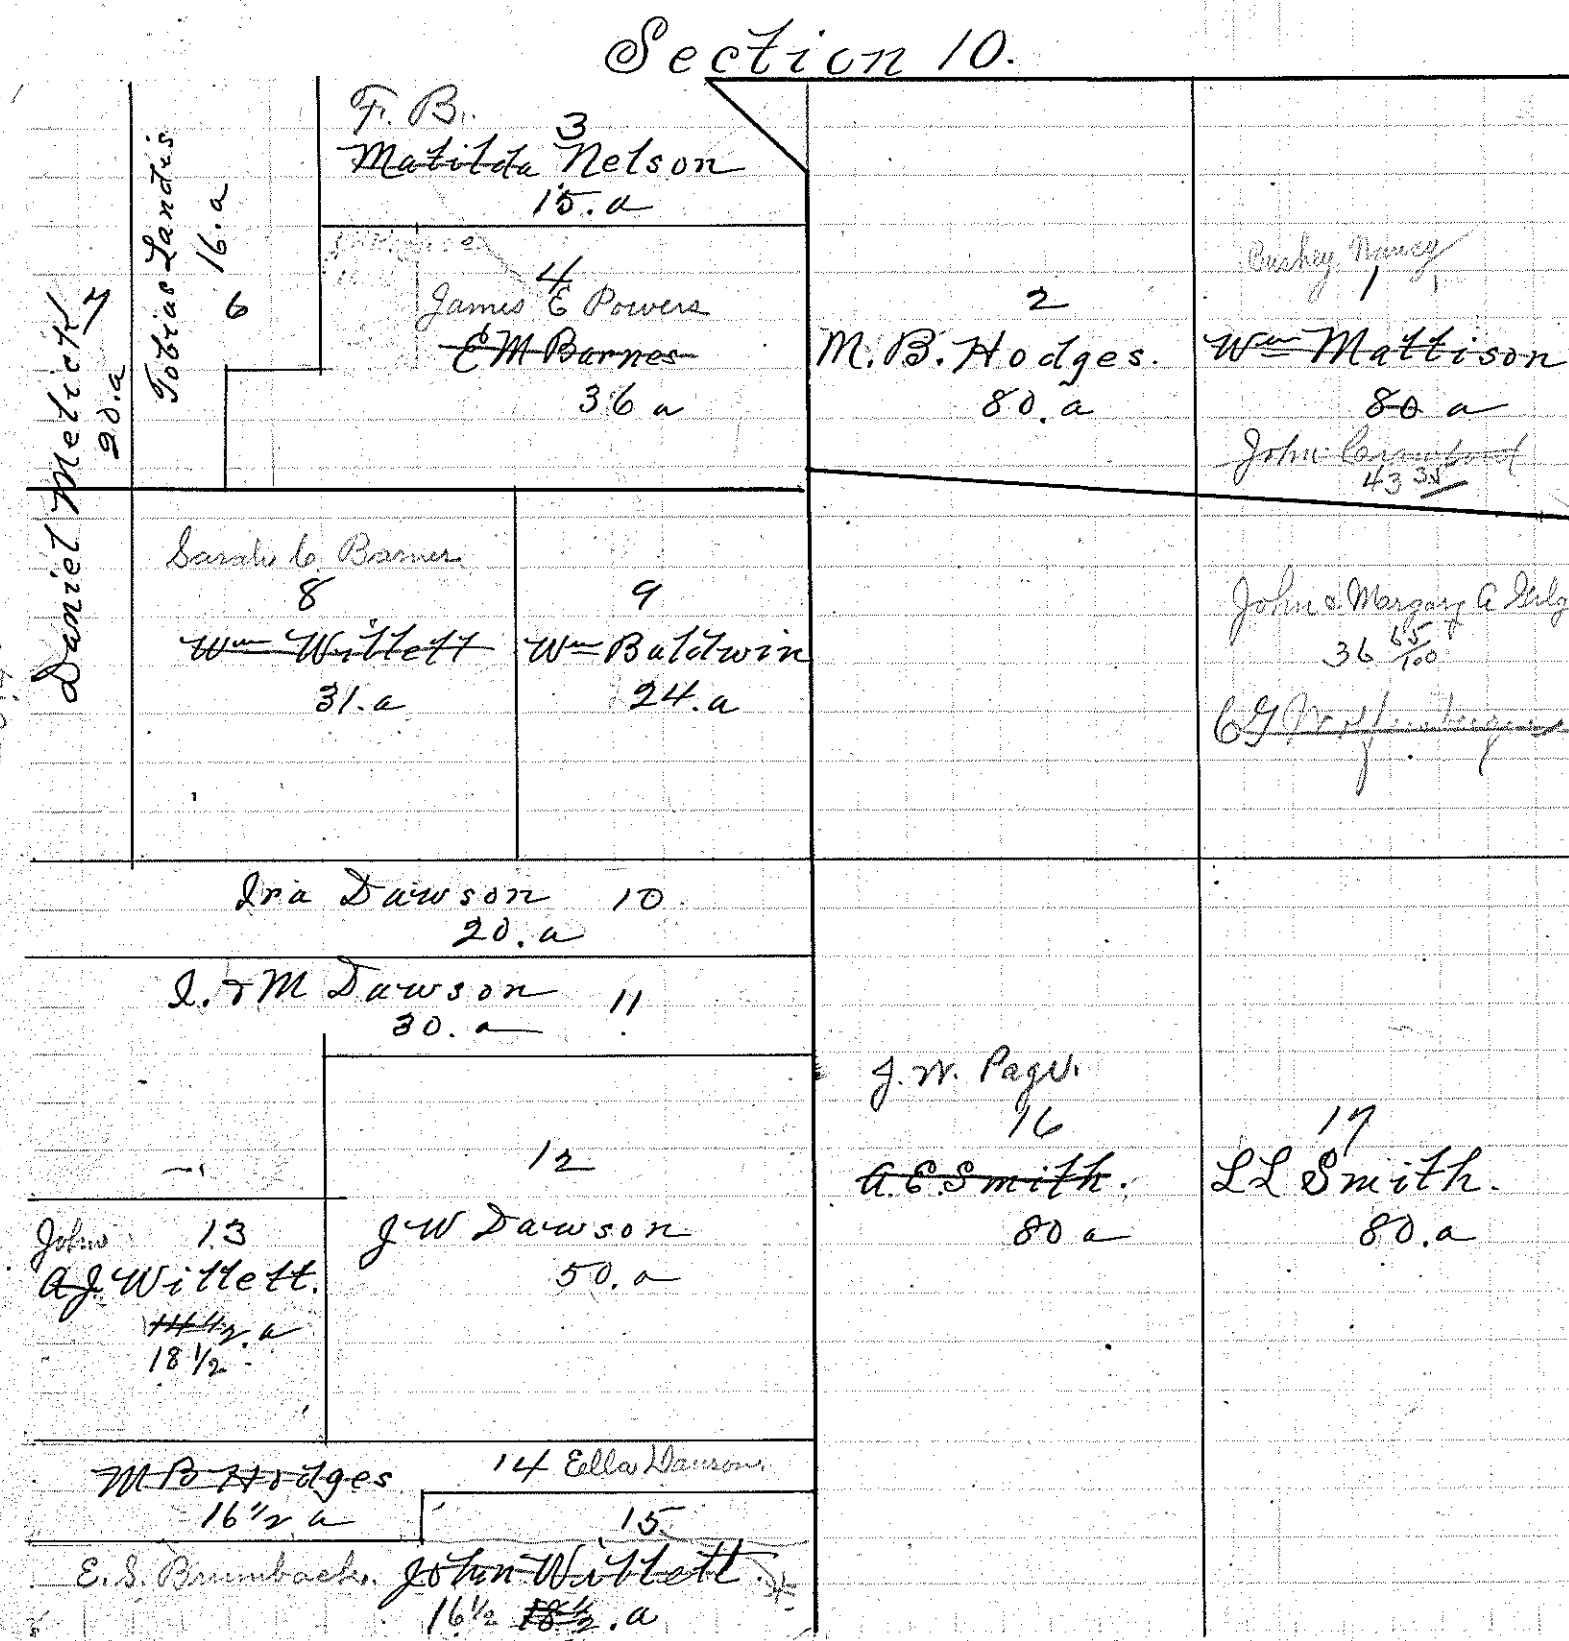 Section 10.
F. B.
3
Matilda Nelson
15.a
Tobias Landis
16.a
6
4
James E Powers
E M Barnes
36 a
2
M. B. Hodges.
80.a
Nancy
1
Wm Mattison
80 a
John Crawford
43 35
Daniel Melick
7
20.a
Sarah C. Barnes
8
Wm Willett
31.a
9
Wm Baldwin
24.a
John & Margary A
36 65/100
C G
Ira Dawson 10
20.a
I. & M Dawson 11
30. a
12
J W Dawson
50.a
John 13
A J Willett.
14 1/2 .a
18 1/2
J. W. Page.
16
A. E. Smith.
80 a
17
L L Smith.
80.a
M B Hodges
16 1/2 a
14 Ella Dawson
15
E. S. Brumback. John Willett
16 1/2 18 1/2 .a